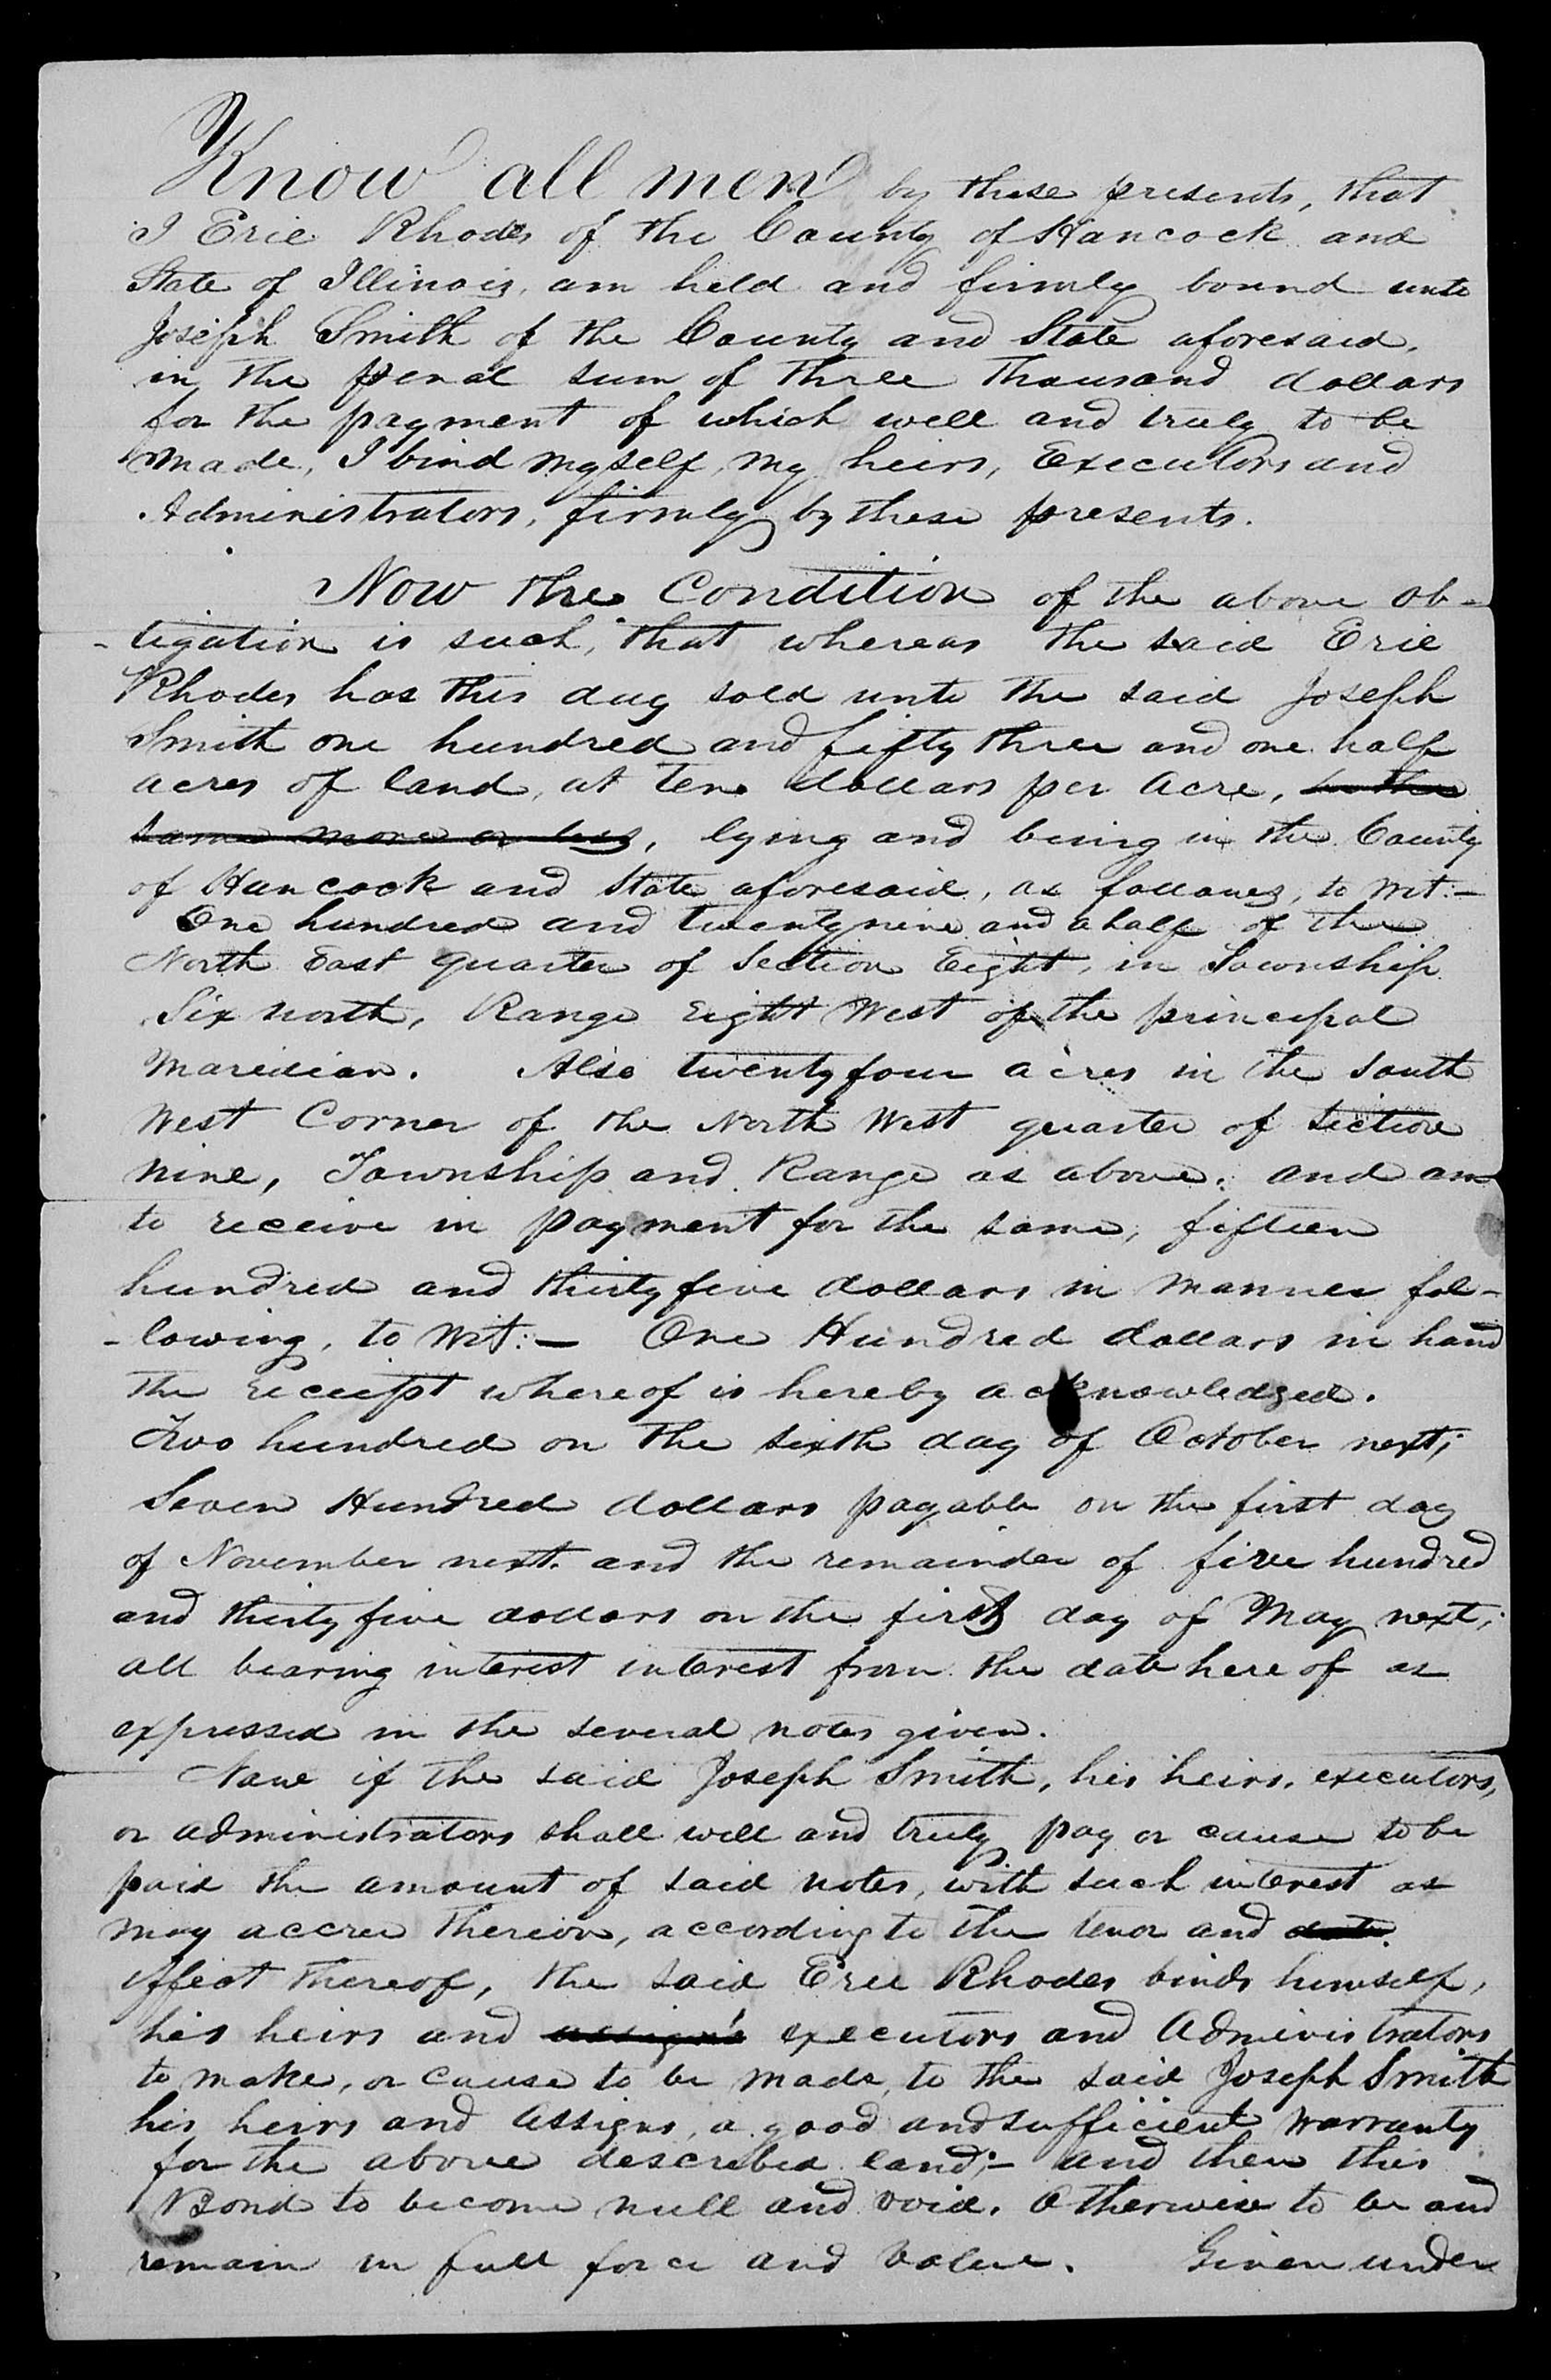 Know all men by these presents, that
I Erie Rhodes of the County of Hancock and
State of Illinois, am held and firmly bound unto
Joseph Smith of the County and State aforesaid,
in the penal sum of three thousand dollars
for the payment of which well and truly to be
made, I bind myself, my heirs, Executors and
Administrators, firmly by these presents.
Now the Condition of the above ob-
-ligation is such, that whereas the said Erie
Rhodes has this day sold unto the said Joseph
Smith one hundred and fifty three and one half
acres of land, at ten dollars per acre, be the
same more or less, lying and being in the County
of Hancock and State aforesaid, as follows, to wit:-
One hundred and twenty nine and a half of the
North East quarter of Section Eight, in Township
Six north, Range eight West of the principal
Maredian. Also twenty four acres in the South
West Corner of the North West quarter of Section
nine, Township and Range as above; and am
to receive in payment for the same, fifteen
hundred and thirty five dollars in manner fol-
-lowing, to wit:- One Hundred dollars in hand
the receipt whereof is hereby acknowledged.
Two hundred on the sixth day of October next;
Seven Hundred dollars payable on the first day
of November next. and the remainder of five hundred
and thirty five dollars on the first day of May next;
all bearing interest interest from the date here of as
expressed in the several notes given.
Now if the said Joseph Smith, his heirs, executors,
or administrators shall well and truly pay or cause to be
paid the amount of said notes, with such interest as
may accrue thereon, according to the tenor and date
effect thereof, the said Erie Rhodes binds himself,
his heirs and assign's executors and Administrators
to make, or cause to be made, to the said Joseph Smith
his heirs and assigns, a good and sufficient warranty
for the above described land;- and then this
Bond to become null and void. Otherwise to be and
remain in full force and value. Given under